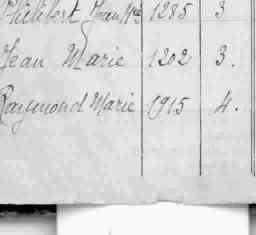 Philibert Jean Mie 1285 3
Jean Marie 1202 3.
Raymond Marie 1915 4.